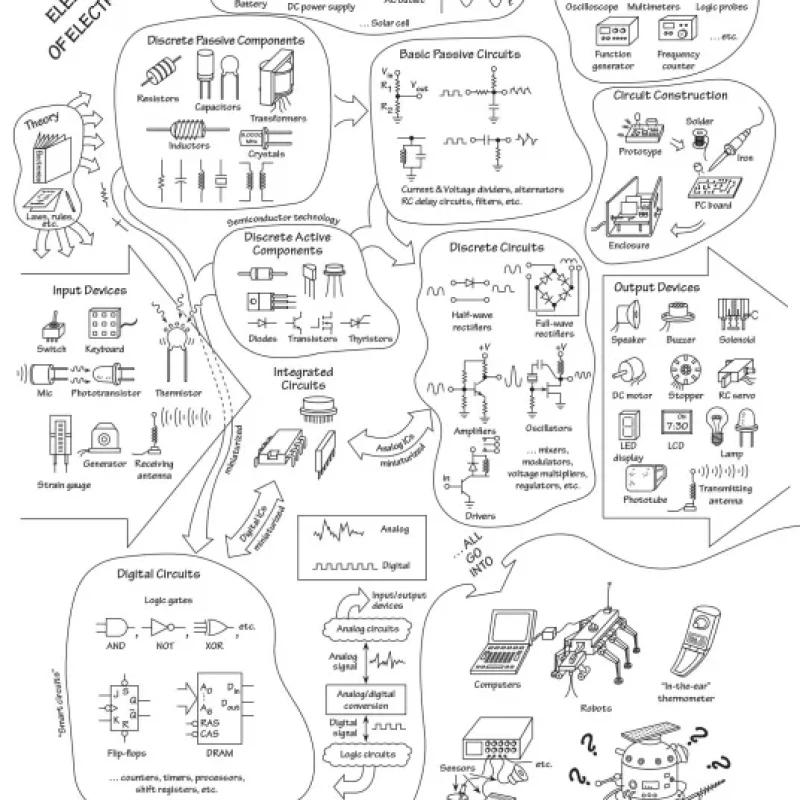 OF ELECTR
Battery
DC power supply
... Solar cell
Oscilloscope Multimeters Logic probes
Function
generator
Frequency
counter
...etc.
Theory
Laws, rules,
etc.
Discrete Passive Components
Resistors
Capacitors
Transformers
Inductors
8.0000
MHz
Crystals
Basic Passive Circuits
Vin
R1
Vout
R2
Current & Voltage dividers, alternators
RC delay circuits, filters, etc.
Circuit Construction
Prototype
Solder
Iron
PC board
Enclosure
Semiconductor technology
Discrete Active
Components
Diodes
Transistors
Thyristors
Discrete Circuits
Half-wave
rectifiers
Full-wave
rectifiers
+V
+V
Amplifiers
Oscillators
... mixers,
modulators,
voltage multipliers,
regulators, etc.
In
Drivers
Input Devices
Switch
Keyboard
Mic
Phototransistor
Thermistor
Strain gauge
Generator
Receiving
antenna
Integrated
Circuits
miniaturized
Analog ICs
miniaturized
Digital ICs
miniaturized
Output Devices
Speaker
Buzzer
Solenoid
DC motor
Stepper
RC servo
LED
display
7:30
LCD
Lamp
Phototube
Transmitting
antenna
Analog
Digital
... ALL
GO
INTO
Digital Circuits
Logic gates
AND
,
NOT
,
XOR
, etc.
"Smart circuits"
J S Q
K R Q̅
Flip-flops
A0
A8
RAS
CAS
Din
Dout
DRAM
... counters, timers, processors,
shift registers, etc.
Input/output
devices
Analog circuits
Analog
signal
Analog/digital
conversion
Digital
signal
Logic circuits
Computers
Robots
"In-the-ear"
thermometer
Sensors
etc.
? ? ? ?